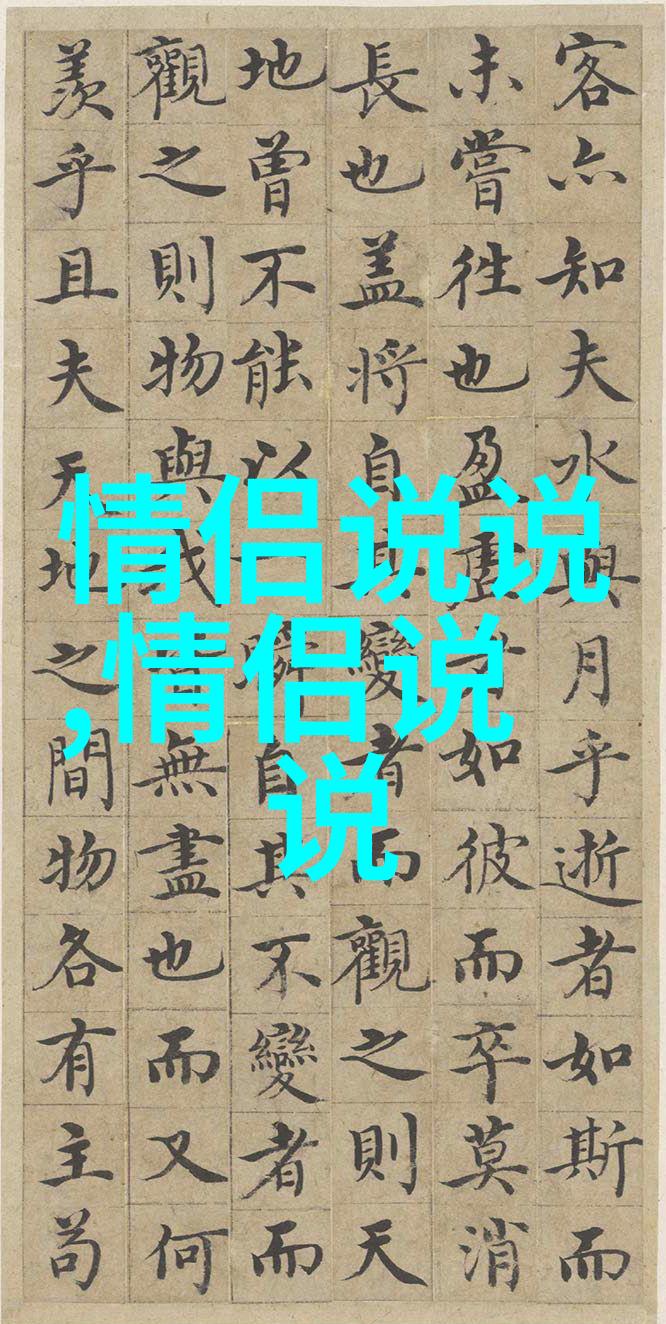 客亦知夫水與月乎逝者如斯而
未嘗徃也盈虛如彼而卒莫消
長也盖將自其變者而觀之則天
地曾不能以瞬自其不變者而
觀之則物與我無盡也而又何
羨乎且夫天地之間物各有主苟
情侣说说
,情侣说
说